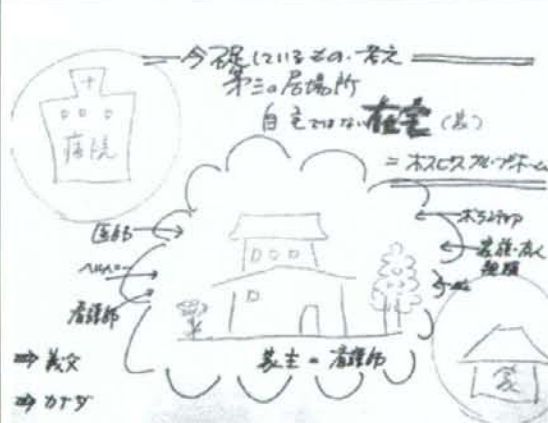 今足しているもの・考え
第三の居場所
自宅ではない在宅(家)
=ホスピスグループホーム
病院
医師
ヘルパー
看護師
ボランティア
家族・友人
家主=看護師
家
⇒義父
⇒カナダ